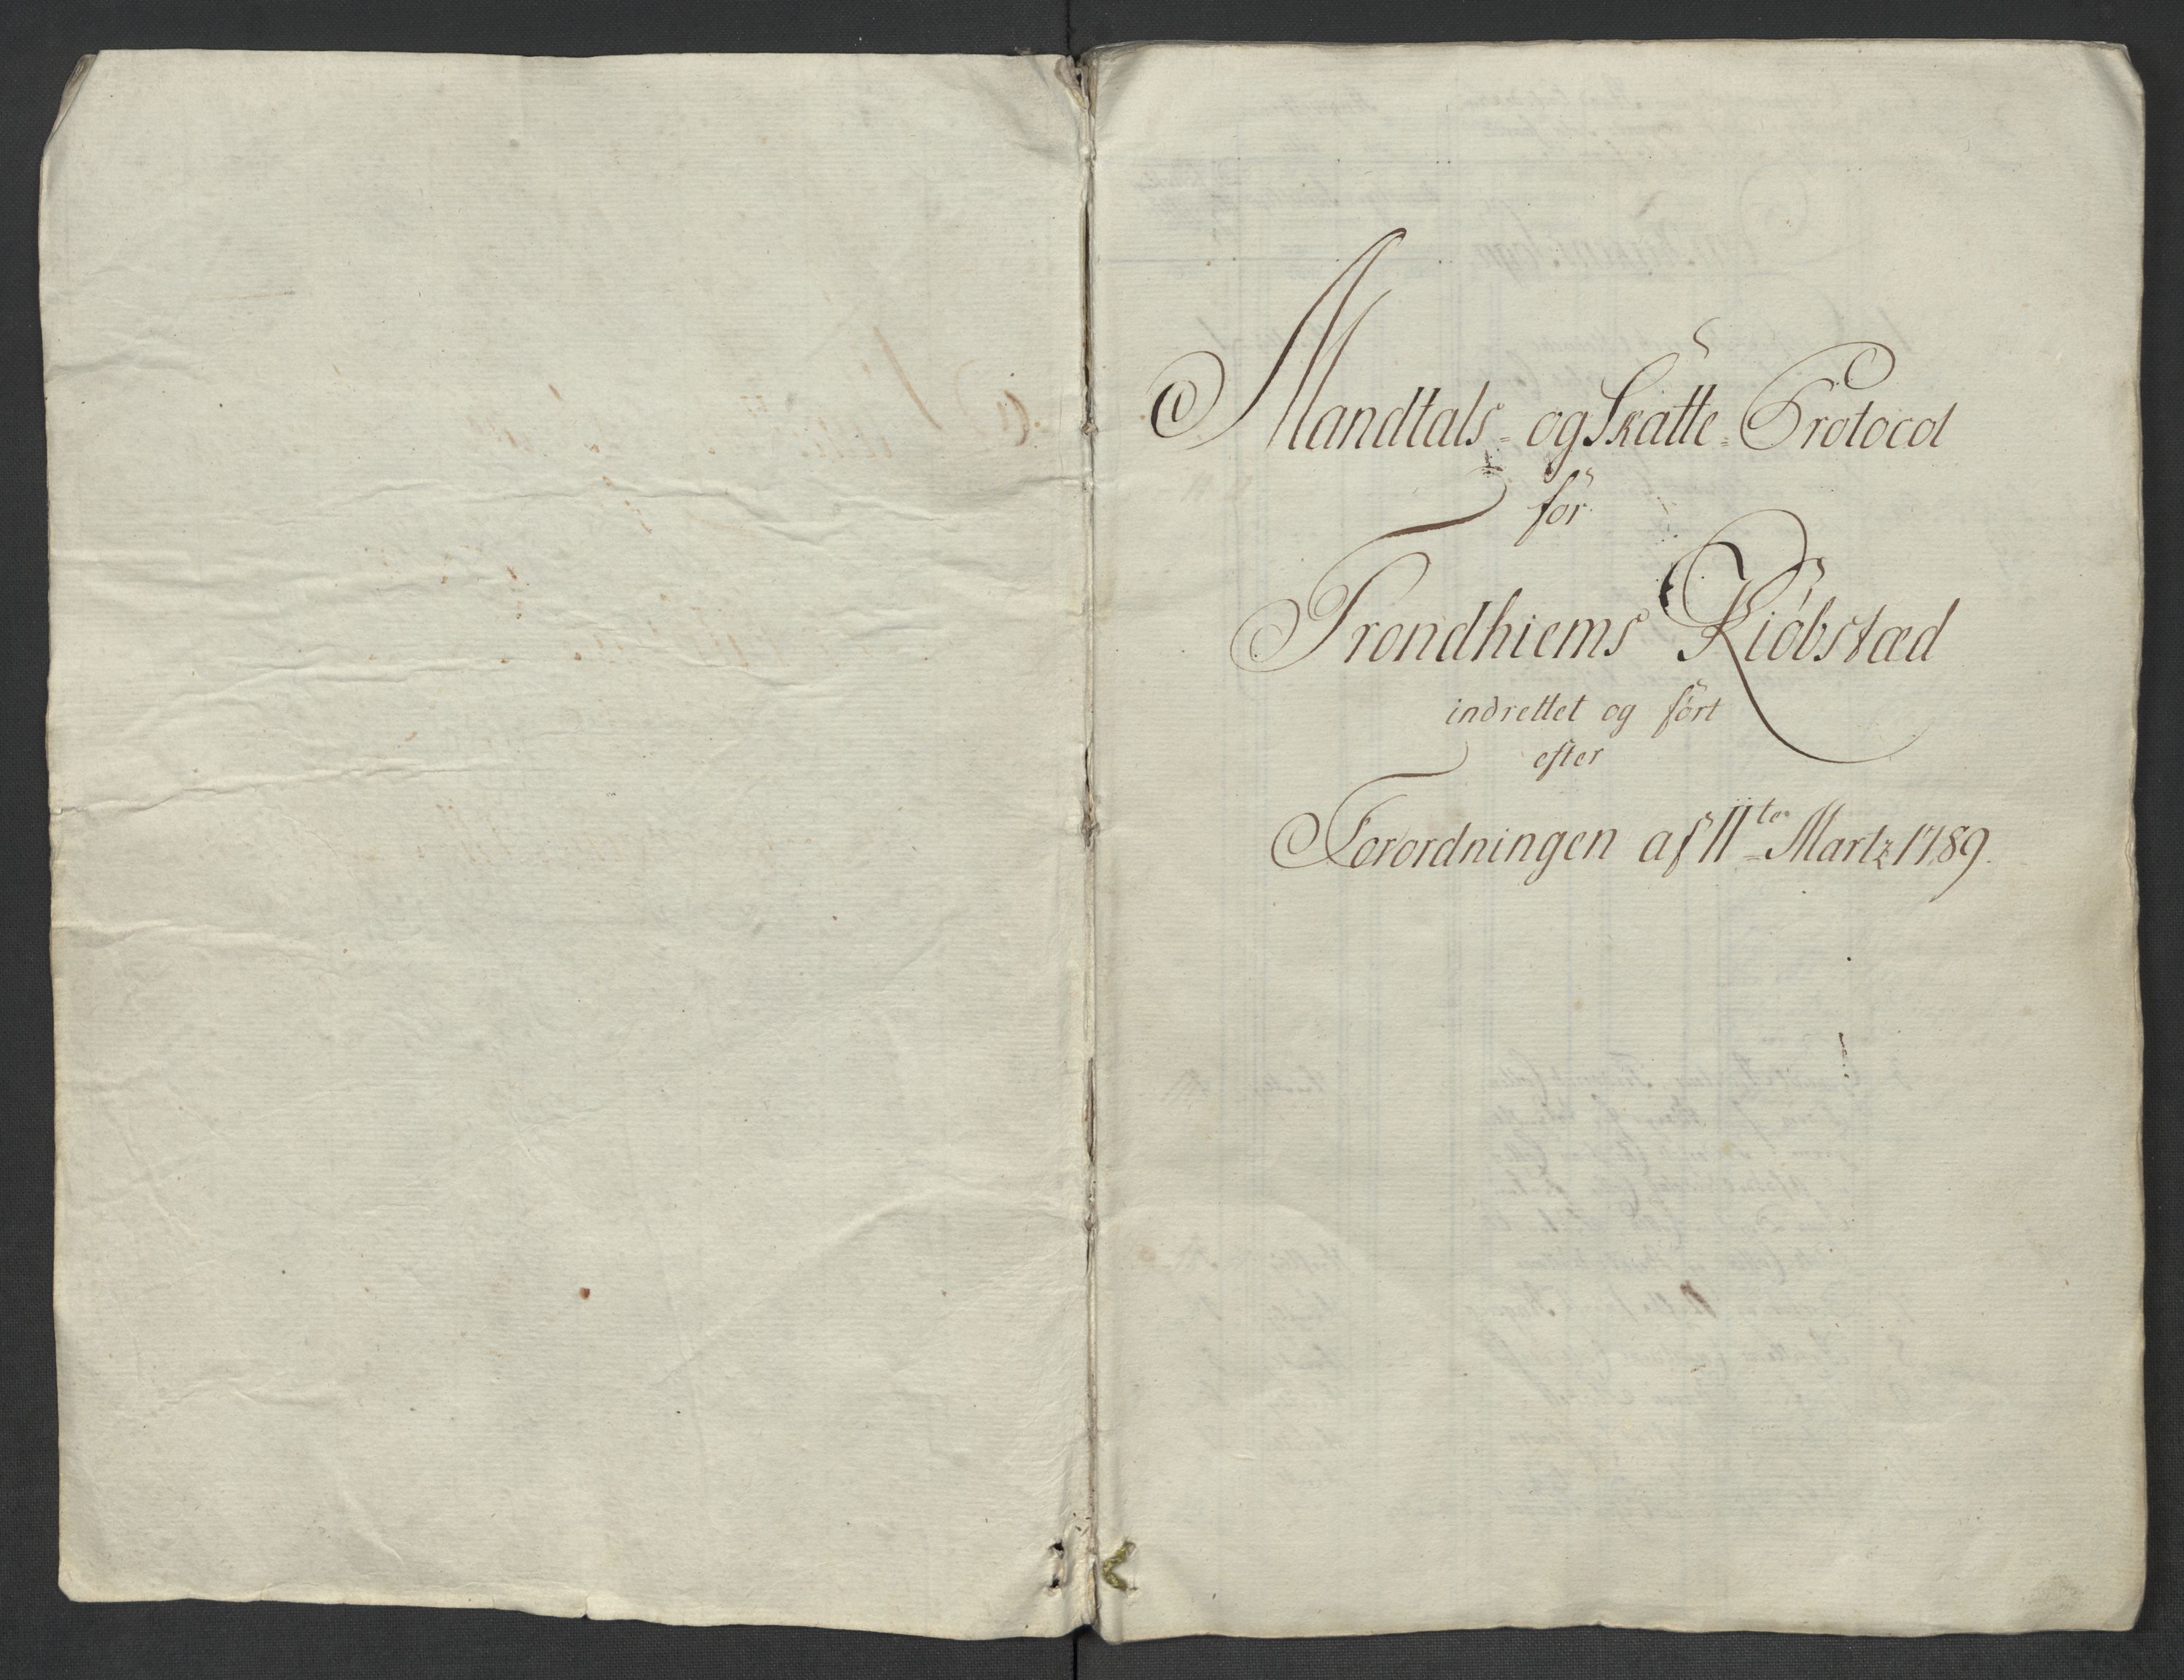 Mandtals- og Skatte-Protocol
for
Trondhiems Kiöbstæd
indrettet og fört
efter
Forordningen af 11te Martz 1789.